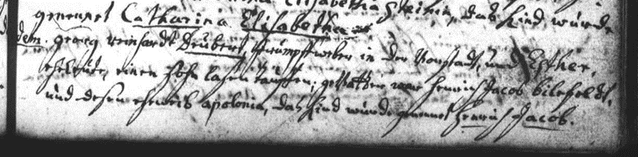 Elisabetha Steinin, das Kind wurde
genennet Catharina Elisabetha
dem georg reinhardt Deubert, strumpfweber in der Neustadt, und Esther,
eheleute, einen sohn lasen tauffen; gefatter war henrich Jacob bilefeldt,
und desen eheweib apolonia, das Kind wurde genennet henrich Jacob.